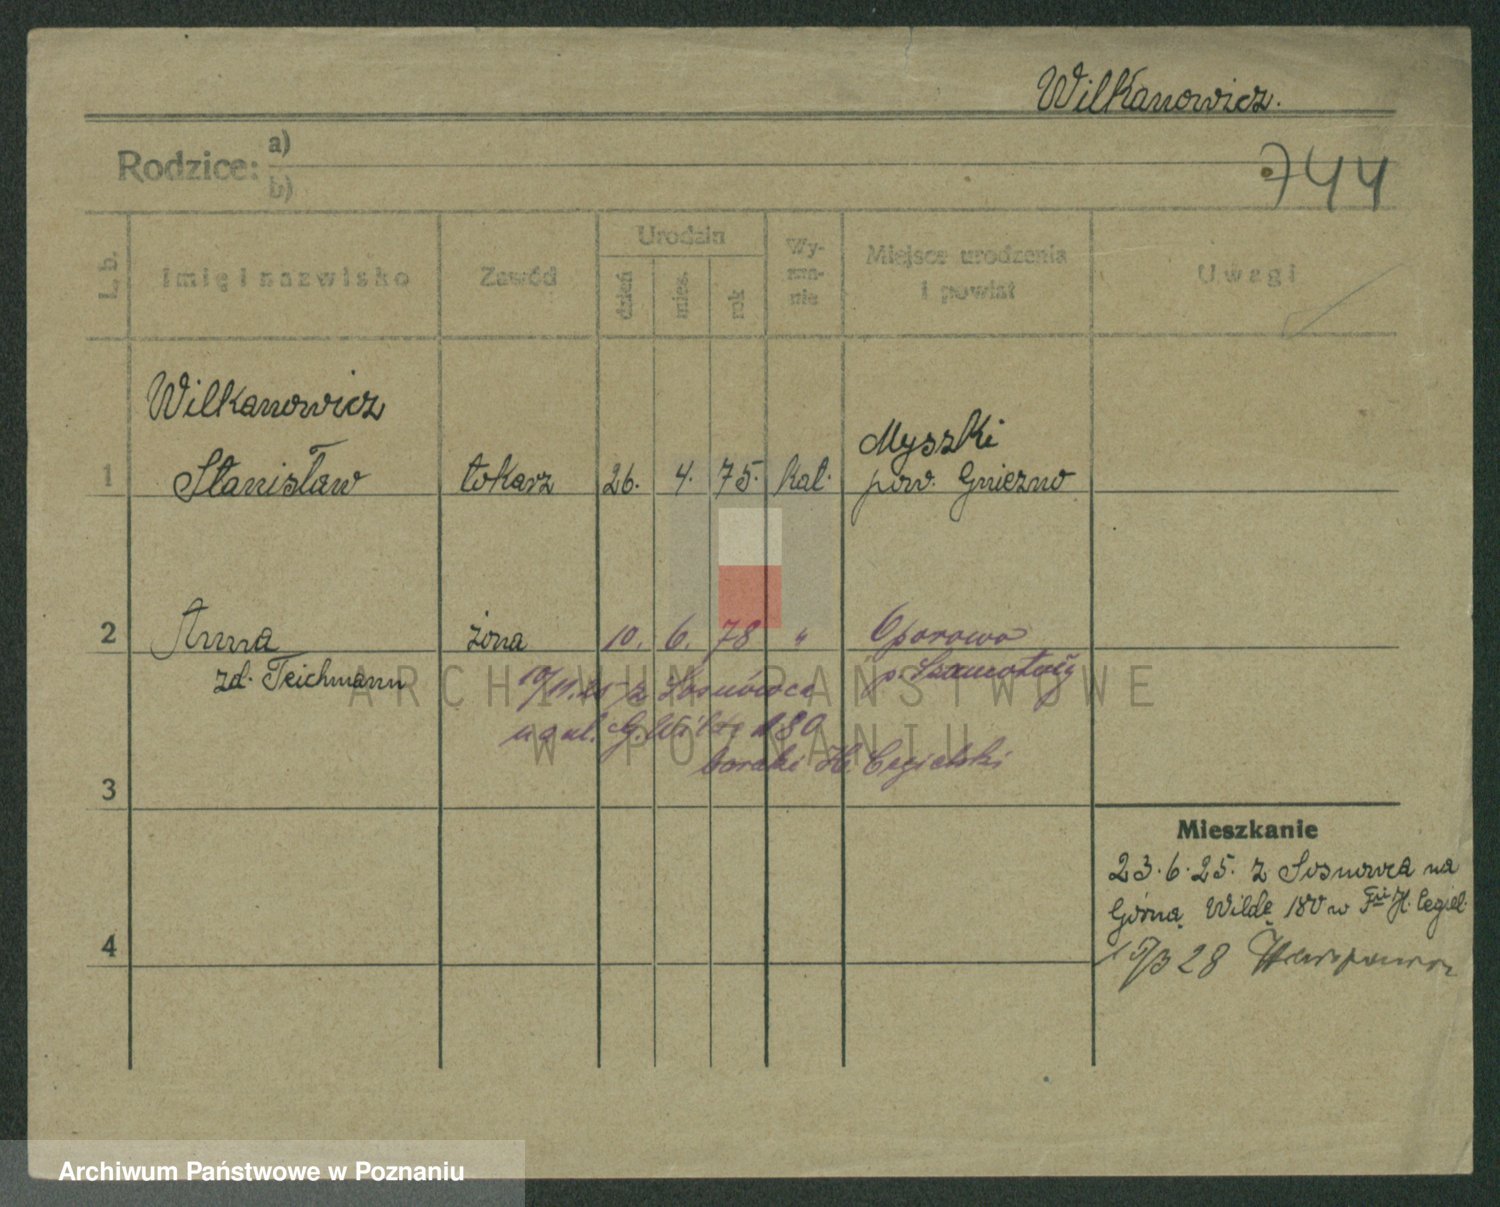 Wilkanowicz.
Rodzice: a)
b)
744
L. b.
Imię i nazwisko
Zawód
Urodzin
dzień
mies.
rok
Wy-
zna-
nie
Miejsce urodzenia
i powiat
Uwagi
Wilkanowicz
1 Stanisław tokarz 26. 4. 75. kat. Myszki
pow. Gniezno
2 Anna żona 10. 6. 78 " Oporowo
zd. Teichmann p. Szamotuły
10/11.25 z Sosnowca
na ul. G. Wilda 180
baraki H. Cegielski
3
Mieszkanie
23.6.25. z Sosnowca na
Górną Wildę 180 w H. Cegiel.
4
28
ARCHIWUM PAŃSTWOWE
W POZNANIU
Archiwum Państwowe w Poznaniu